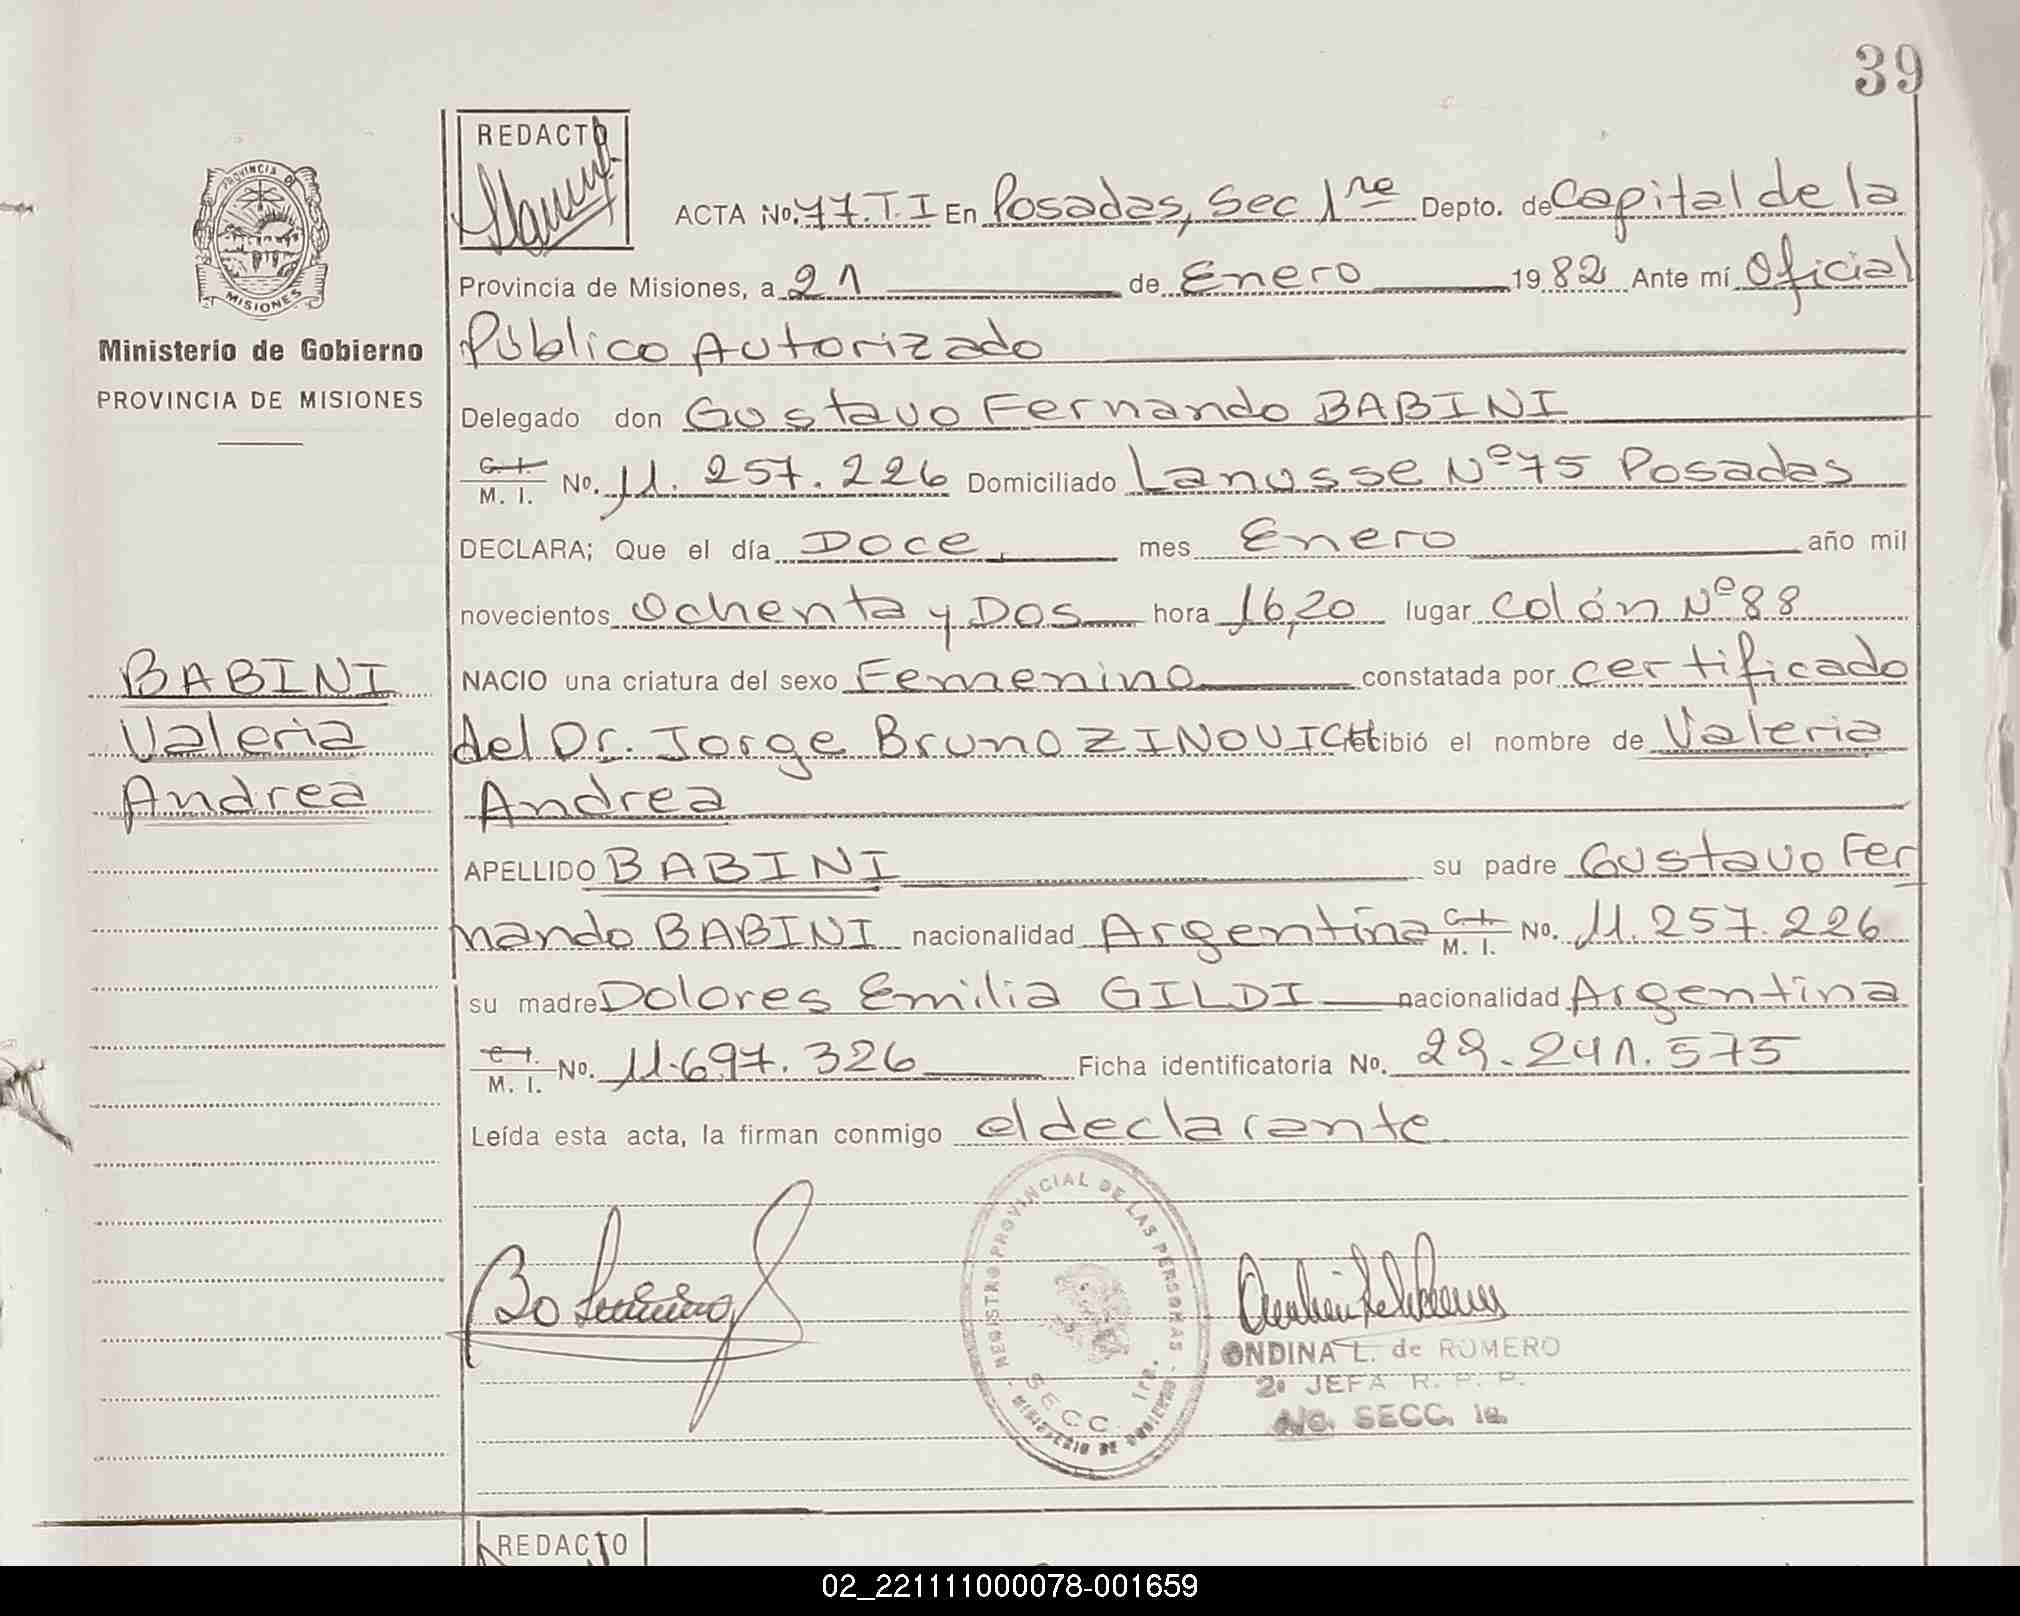 39
REDACTO
PROVINCIA DE
MISIONES
Ministerio de Gobierno
PROVINCIA DE MISIONES
ACTA No. 77.T.I En Posadas, Sec 1re Depto. de Capital de la
Provincia de Misiones, a 21 de Enero 1982 Ante mí Oficial
Público Autorizado
Delegado don Gustavo Fernando BABINI
C. I.
M. I. No. 11.257.226 Domiciliado Lanusse Nº 75 Posadas
DECLARA; Que el día Doce mes Enero año mil
novecientos ochenta y Dos hora 16,20 lugar colón Nº 88
NACIO una criatura del sexo Femenino constatada por certificado
del Dr. Jorge Bruno ZINOVICH recibió el nombre de Valeria
Andrea
BABINI
Valeria
Andrea
APELLIDO BABINI su padre Gustavo Fer
nando BABINI nacionalidad Argentina C. I.
M. I. No. 11.257.226
su madre Dolores Emilia GILDI nacionalidad Argentina
C. I.
M. I. No. 11.697.326 Ficha identificatoria No. 29.241.575
Leída esta acta, la firman conmigo el declarante
REGISTRO PROVINCIAL DE LAS PERSONAS
SECC. 1ra.
MINISTERIO DE GOBIERNO
ONDINA L. de ROMERO
2º JEFA R. P. P.
A/C. SECC. 1a.
REDACTO
02_221111000078-001659